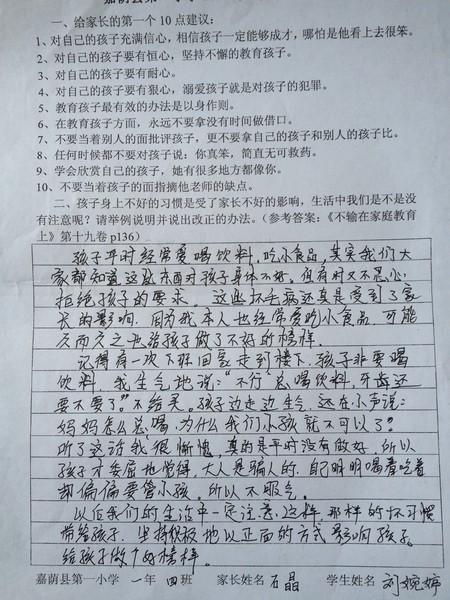 嘉荫县第一小学
一、给家长的第一个10点建议：
1、对自己的孩子充满信心，相信孩子一定能够成才，哪怕是他看上去很笨。
2、对自己的孩子要有恒心，坚持不懈的教育孩子。
3、对自己的孩子要有耐心。
4、对自己的孩子要有狠心，溺爱孩子就是对孩子的犯罪。
5、教育孩子最有效的办法是以身作则。
6、在教育孩子方面，永远不要拿没有时间做借口。
7、不要当着别人的面批评孩子，更不要拿自己的孩子和别人的孩子比。
8、任何时候都不要对孩子说：你真笨，简直无可救药。
9、学会欣赏自己的孩子，她有很多地方都像你。
10、不要当着孩子的面指摘他老师的缺点。
二、孩子身上不好的习惯是受了家长不好的影响，生活中我们是不是没
有注意呢？请举例说明并说出改正的办法。（参考答案：《不输在家庭教育
上》第十九卷 p136）
孩子平时经常爱喝饮料，吃小食品，其实我们大
家都知道这些东西对孩子身体不好，但有时又不忍心
拒绝孩子的要求。这些坏毛病还真是受到了家
长的影响，因为我本人也经常爱吃小食品，可能
久而久之也给孩子做了不好的榜样。
记得有一次下班回家走到楼下，孩子非要喝
饮料，我生气地说："不行"总喝饮料，牙齿还
要不要了。"不给买。孩子边走边生气，还在小声说：
妈妈怎么总喝，为什么我们小孩就不可以了？
听了这话我很惭愧，真的是平时没有做好，所以
孩子才委屈地觉得，大人是骗人的，自己明明喝着吃着
却偏偏要管小孩，所以不服气。
以后我们的生活中一定注意，这样，那样的坏习惯
带给孩子，坚持积极地以正面的方式影响孩子，
给孩子做个好榜样。
嘉荫县第一小学 一年 四班 家长姓名 石晶 学生姓名 刘婉婷